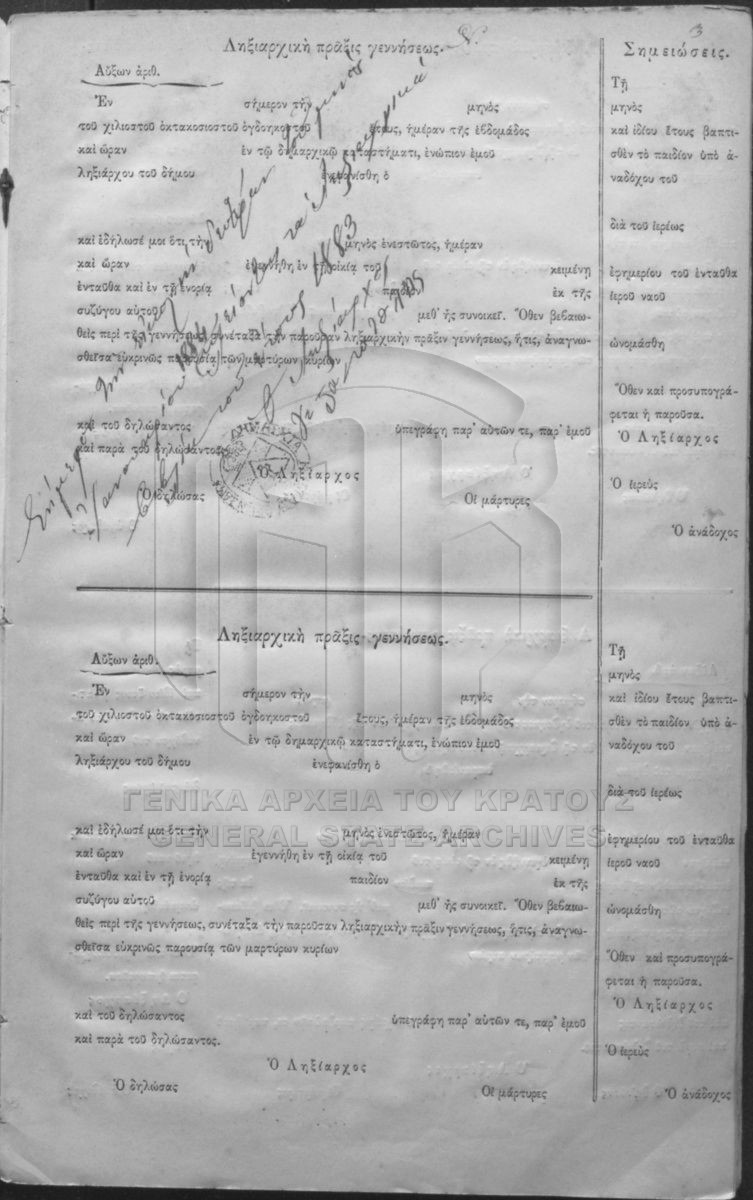 3
Ληξιαρχικὴ πρᾶξις γεννήσεως.
Αὔξων ἀριθ.
Ἐν σήμερον τὴν μηνὸς
τοῦ χιλιοστοῦ ὀκτακοσιοστοῦ ὀγδοηκοστοῦ ἔτους, ἡμέραν τῆς ἑβδομάδος
καὶ ὥραν ἐν τῷ δημαρχικῷ καταστήματι, ἐνώπιον ἐμοῦ
ληξιάρχου τοῦ δήμου ἐνεφανίσθη ὁ
καὶ ἐδήλωσέ μοι ὅτι τὴν μηνὸς ἐνεστῶτος, ἡμέραν
καὶ ὥραν ἐγεννήθη ἐν τῇ οἰκίᾳ τοῦ κειμένῃ
ἐνταῦθα καὶ ἐν τῇ ἐνορίᾳ παιδίον ἐκ τῆς
συζύγου αὐτοῦ μεθ' ἧς συνοικεῖ. Ὅθεν βεβαιω-
θεὶς περὶ τῆς γεννήσεως, συνέταξα τὴν παροῦσαν ληξιαρχικὴν πρᾶξιν γεννήσεως, ἥτις, ἀναγνω-
σθεῖσα εὐκρινῶς παρουσίᾳ τῶν μαρτύρων κυρίων
καὶ τοῦ δηλώσαντος ὑπεγράφη παρ' αὐτῶν τε, παρ' ἐμοῦ
καὶ παρὰ τοῦ δηλώσαντος.
Ὁ Ληξίαρχος
Ὁ δηλώσας Οἱ μάρτυρες
Σημειώσεις.
Τῇ
μηνὸς
καὶ ἰδίου ἔτους βαπτι-
σθὲν τὸ παιδίον ὑπὸ ἀ-
ναδόχου τοῦ
διὰ τοῦ ἱερέως
ἐφημερίου τοῦ ἐνταῦθα
ἱεροῦ ναοῦ
ὠνομάσθη
Ὅθεν καὶ προσυπογρά-
φεται ἡ παροῦσα.
Ὁ Ληξίαρχος
Ὁ ἱερεὺς
Ὁ ἀνάδοχος
1883
Ὁ Ληξίαρχος
Ληξιαρχικὴ πρᾶξις γεννήσεως.
Αὔξων ἀριθ.
Ἐν σήμερον τὴν μηνὸς
τοῦ χιλιοστοῦ ὀκτακοσιοστοῦ ὀγδοηκοστοῦ ἔτους, ἡμέραν τῆς ἑβδομάδος
καὶ ὥραν ἐν τῷ δημαρχικῷ καταστήματι, ἐνώπιον ἐμοῦ
ληξιάρχου τοῦ δήμου ἐνεφανίσθη ὁ
καὶ ἐδήλωσέ μοι ὅτι τὴν μηνὸς ἐνεστῶτος, ἡμέραν
καὶ ὥραν ἐγεννήθη ἐν τῇ οἰκίᾳ τοῦ κειμένῃ
ἐνταῦθα καὶ ἐν τῇ ἐνορίᾳ παιδίον ἐκ τῆς
συζύγου αὐτοῦ μεθ' ἧς συνοικεῖ. Ὅθεν βεβαιω-
θεὶς περὶ τῆς γεννήσεως, συνέταξα τὴν παροῦσαν ληξιαρχικὴν πρᾶξιν γεννήσεως, ἥτις, ἀναγνω-
σθεῖσα εὐκρινῶς παρουσίᾳ τῶν μαρτύρων κυρίων
καὶ τοῦ δηλώσαντος ὑπεγράφη παρ' αὐτῶν τε, παρ' ἐμοῦ
καὶ παρὰ τοῦ δηλώσαντος.
Ὁ Ληξίαρχος
Ὁ δηλώσας Οἱ μάρτυρες
Τῇ
μηνὸς
καὶ ἰδίου ἔτους βαπτι-
σθὲν τὸ παιδίον ὑπὸ ἀ-
ναδόχου τοῦ
διὰ τοῦ ἱερέως
ἐφημερίου τοῦ ἐνταῦθα
ἱεροῦ ναοῦ
ὠνομάσθη
Ὅθεν καὶ προσυπογρά-
φεται ἡ παροῦσα.
Ὁ Ληξίαρχος
Ὁ ἱερεὺς
Ὁ ἀνάδοχος
ΓΕΝΙΚΑ ΑΡΧΕΙΑ ΤΟΥ ΚΡΑΤΟΥΣ
GENERAL STATE ARCHIVES